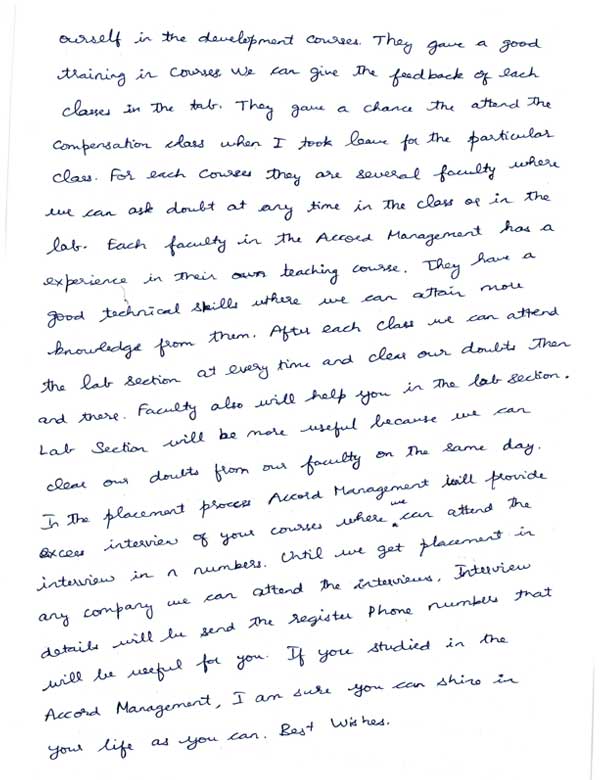 ourself in the development courses. They gave a good
training in courses. We can give the feedback of each
classes in the tab. They gave a chance the attend the
compensation class when I took leave for the particular
class. For each courses they are several faculty where
we can ask doubt at any time in the class or in the
lab. Each faculty in the Accord Management has a
experience in their own teaching course. They have a
good technical skills where we can attain more
knowledge from them. After each class we can attend
the lab section at every time and clear our doubts then
and there. Faculty also will help you in the lab section.
Lab Section will be more useful because we can
clear our doubts from our faculty on the same day.
In the placement process Accord Management will provide
excess interview of your courses where we can attend the
interview in n numbers. Until we get placement in
any company we can attend the interviews. Interview
details will be send the register Phone numbers that
will be useful for you. If you studied in the
Accord Management, I am sure you can shine in
your life as you can. Best Wishes.